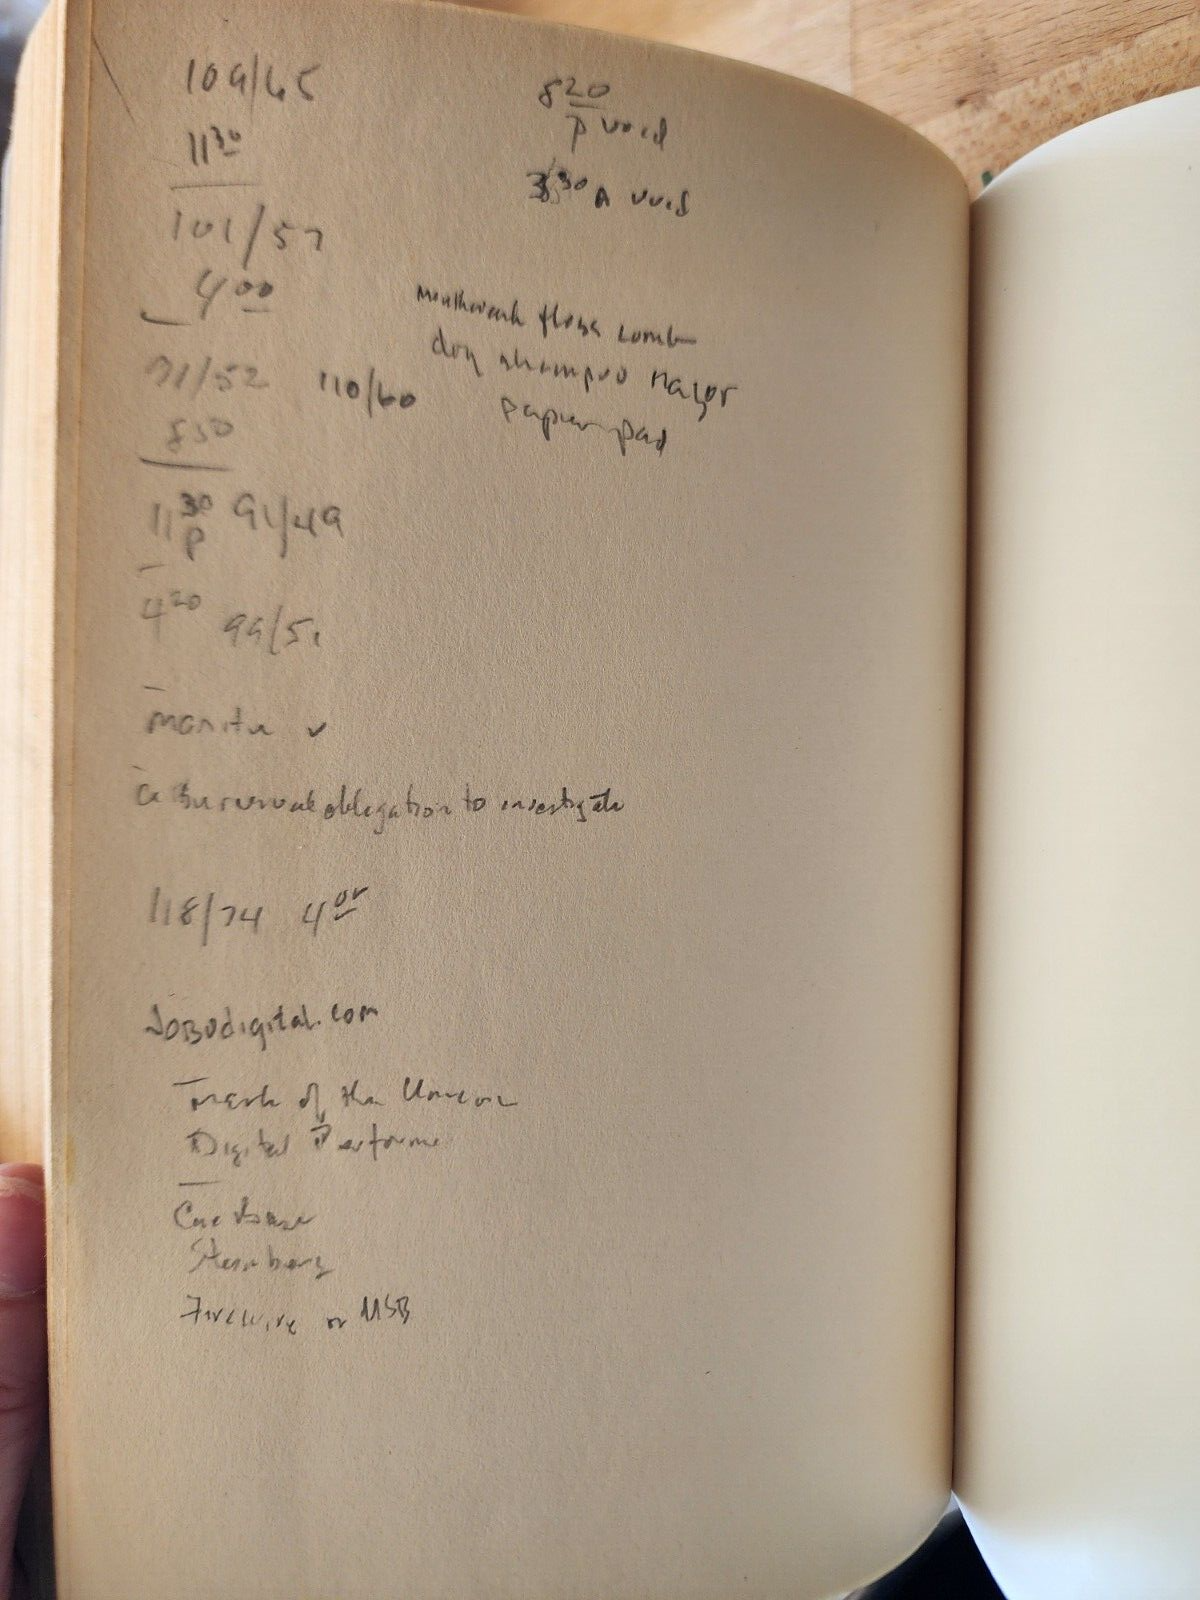 109/65
11³⁰
101/57
4⁰⁰
91/52 110/60
8⁵⁰
11³⁰ P 91/49
4²⁰ 99/51
a survival obligation to investigate
118/74 4⁰⁰
JOBOdigital.com
Mark of the Unicorn
Digital Performer
Cue Base
Steinberg
Firewire or USB
8²⁰
P void
3³⁰ A void
mouthwash floss comb
dry shampoo razor
paper pad